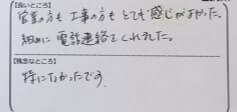 【良いところ】
営業の方も工事の方もとても感じがよかった。
細かに電話連絡をくれました。
【残念なところ】
特になかったです